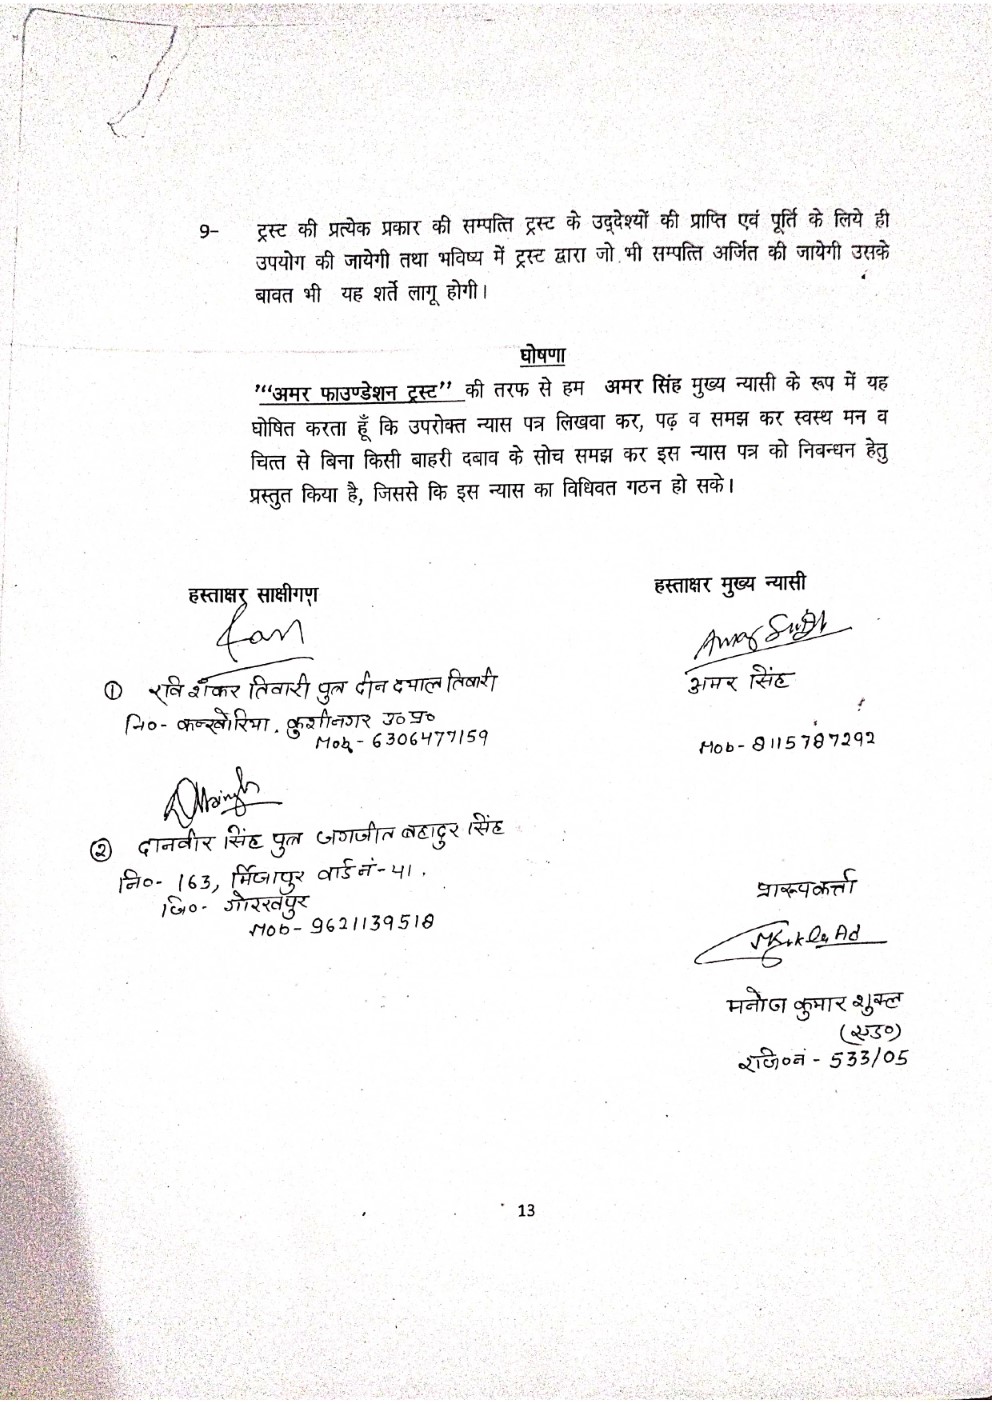 9- ट्रस्ट की प्रत्येक प्रकार की सम्पत्ति ट्रस्ट के उद्देश्यों की प्राप्ति एवं पूर्ति के लिये ही
उपयोग की जायेगी तथा भविष्य में ट्रस्ट द्वारा जो भी सम्पत्ति अर्जित की जायेगी उसके
बावत भी यह शर्ते लागू होगी।
घोषणा
"‘अमर फाउण्डेशन ट्रस्ट’’ की तरफ से हम अमर सिंह मुख्य न्यासी के रूप में यह
घोषित करता हूँ कि उपरोक्त न्यास पत्र लिखवा कर, पढ़ व समझ कर स्वस्थ मन व
चित्त से बिना किसी बाहरी दबाव के सोच समझ कर इस न्यास पत्र को निवन्धन हेतु
प्रस्तुत किया है, जिससे कि इस न्यास का विधिवत गठन हो सके।
हस्ताक्षर साक्षीगण
① रवि शंकर तिवारी पुत्र दीन दयाल तिवारी
नि०- कुशीनगर उ०प्र०
Mob- 6306477159
② दानवीर सिंह पुत्र जगजीत बहादुर सिंह
नि०- 163, मिर्जापुर वार्ड नं-41.
जि०- गोरखपुर
Mob- 9621139518
हस्ताक्षर मुख्य न्यासी
Amar Singh
अमर सिंह
Mob- 8115787292
प्रारूपकर्त्ता
मनोज कुमार शुक्ल
(एड०)
रजि०नं - 533/05
13